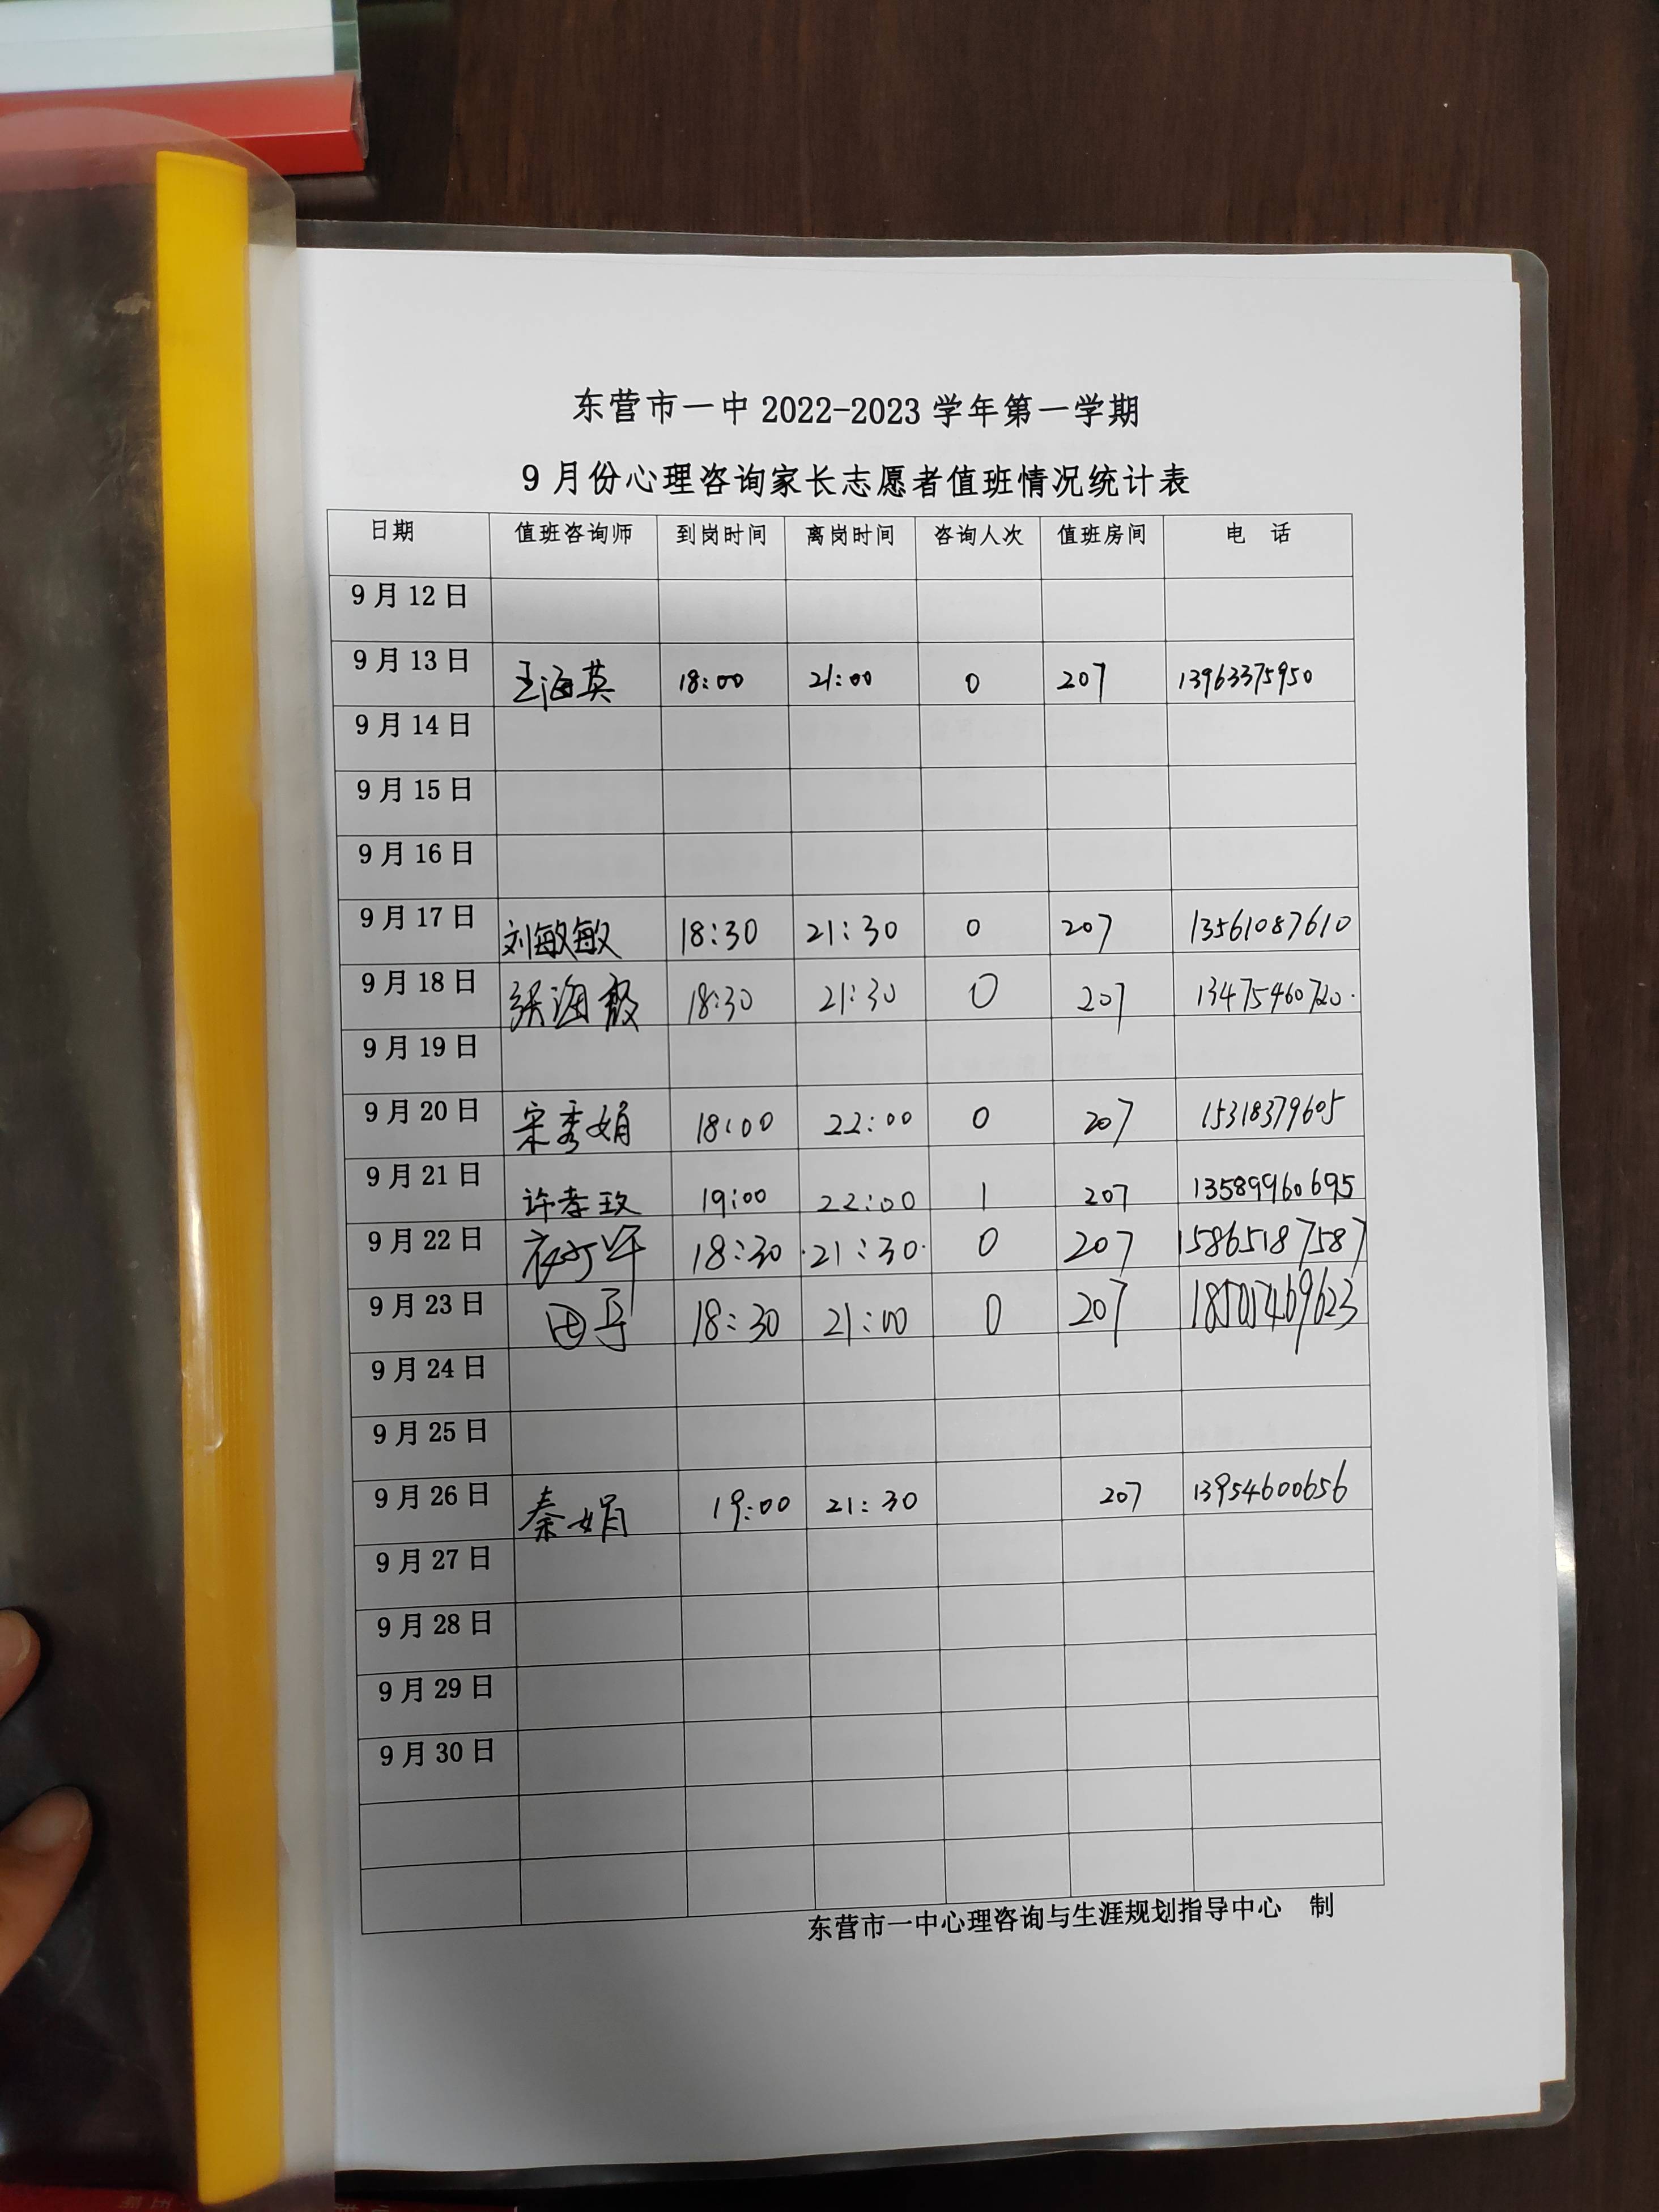 东营市一中 2022-2023 学年第一学期
9 月份心理咨询家长志愿者值班情况统计表
日期 值班咨询师 到岗时间 离岗时间 咨询人次 值班房间 电 话
9 月 12 日
9 月 13 日 王海英 18:00 21:00 0 207 13963375950
9 月 14 日
9 月 15 日
9 月 16 日
9 月 17 日 刘敏敏 18:30 21:30 0 207 13561087610
9 月 18 日 张海霞 18:30 21:30 0 207 13475460720.
9 月 19 日
9 月 20 日 宋秀娟 18:00 22:00 0 207 15318379605
9 月 21 日 许孝玫 19:00 22:00 1 207 13589960695
9 月 22 日 18:30 21:30 0 207 15865187587
9 月 23 日 18:30 21:00 0 207
9 月 24 日
9 月 25 日
9 月 26 日 秦娟 19:00 21:30 207 13954600656
9 月 27 日
9 月 28 日
9 月 29 日
9 月 30 日
东营市一中心理咨询与生涯规划指导中心 制